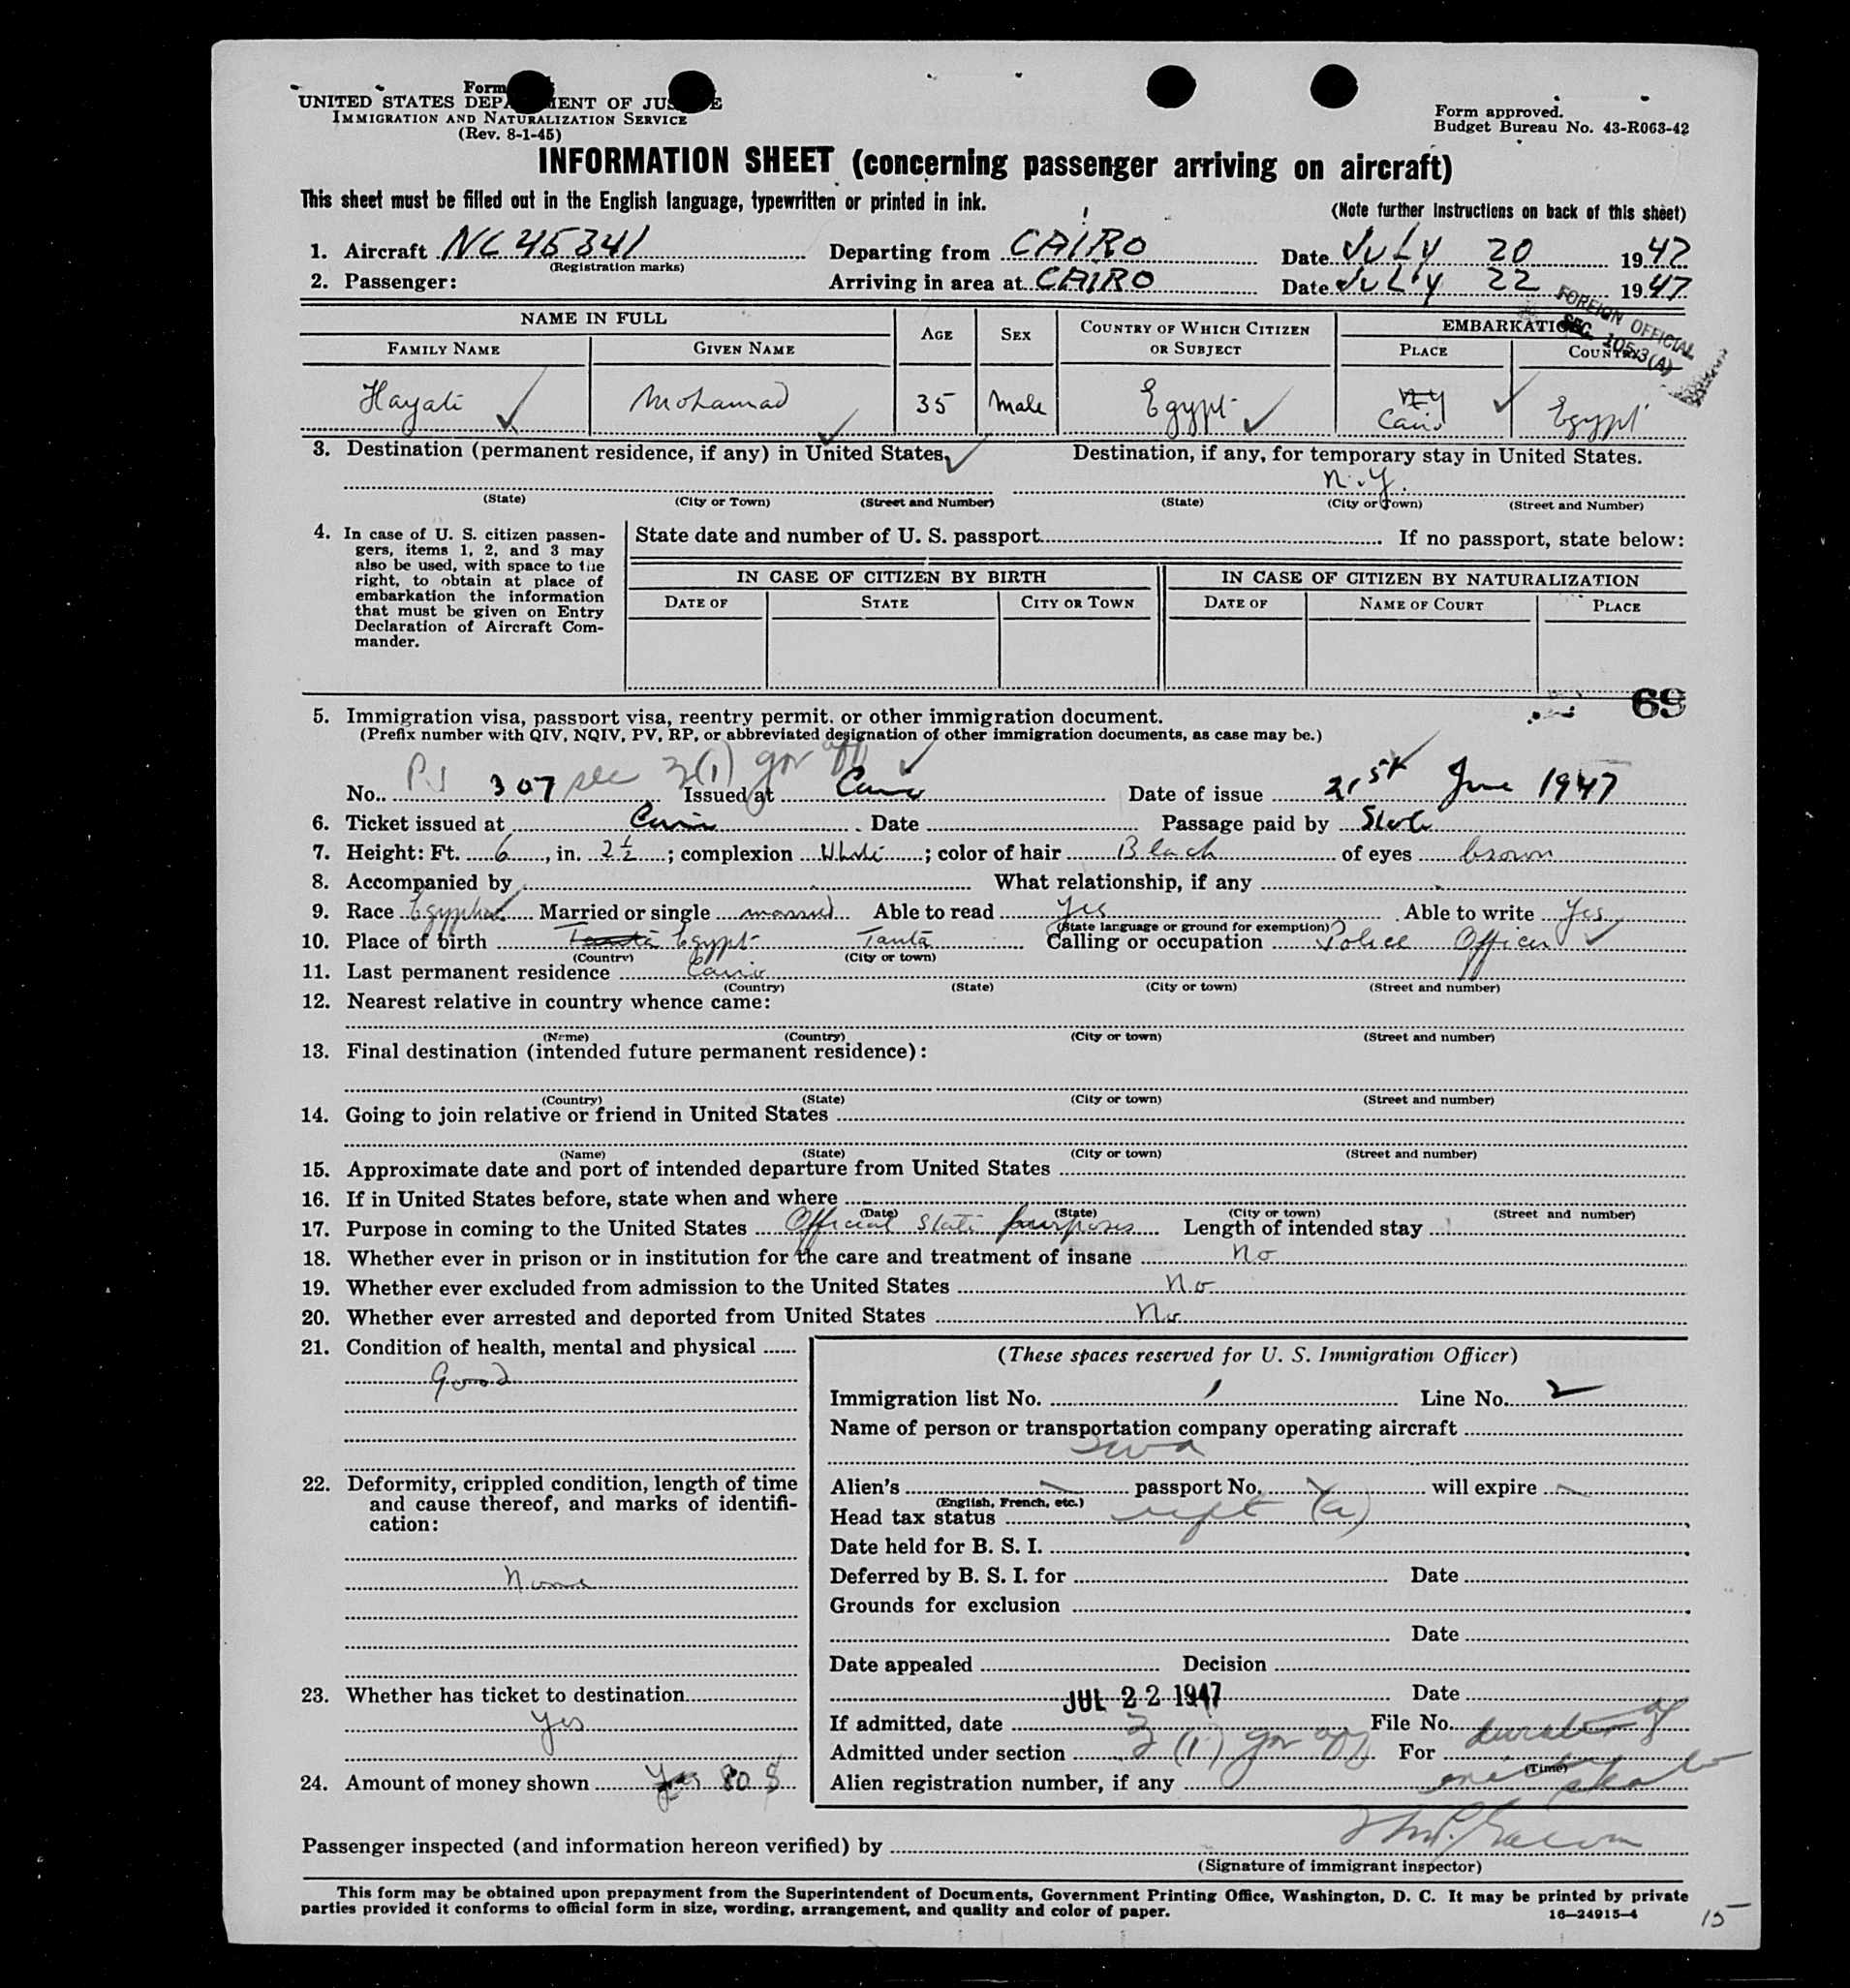 Form
UNITED STATES DEPARTMENT OF JUSTICE
IMMIGRATION AND NATURALIZATION SERVICE
(Rev. 8-1-45)
Form approved.
Budget Bureau No. 43-R063-42
INFORMATION SHEET (concerning passenger arriving on aircraft)
This sheet must be filled out in the English language, typewritten or printed in ink.
(Note further instructions on back of this sheet)
1. Aircraft NC 45341 Departing from CAIRO Date JULY 20 1947
(Registration marks)
2. Passenger: Arriving in area at CAIRO Date JULY 22 1947
FOREIGN OFFICIAL
SEC. 105.3(A)
NAME IN FULL AGE SEX COUNTRY OF WHICH CITIZEN OR SUBJECT EMBARKATION
FAMILY NAME GIVEN NAME PLACE COUNTRY
Hayati Mohamad 35 Male Egypt N.Y Cairo Egypt
3. Destination (permanent residence, if any) in United States. Destination, if any, for temporary stay in United States.
N.Y.
(State) (City or Town) (Street and Number) (State) (City or Town) (Street and Number)
4. In case of U. S. citizen passen-
gers, items 1, 2, and 3 may
also be used, with space to the
right, to obtain at place of
embarkation the information
that must be given on Entry
Declaration of Aircraft Com-
mander.
State date and number of U. S. passport If no passport, state below:
IN CASE OF CITIZEN BY BIRTH IN CASE OF CITIZEN BY NATURALIZATION
DATE OF STATE CITY OR TOWN DATE OF NAME OF COURT PLACE
69
5. Immigration visa, passport visa, reentry permit, or other immigration document.
(Prefix number with QIV, NQIV, PV, RP, or abbreviated designation of other immigration documents, as case may be.)
No. 307 sec 3(1) gov off Issued at Cairo Date of issue 21st June 1947
6. Ticket issued at Cairo Date Passage paid by State
7. Height: Ft. 6, in. 2½; complexion White; color of hair Black of eyes brown
8. Accompanied by What relationship, if any
9. Race Egyptian Married or single married Able to read yes Able to write Yes
(State language or ground for exemption)
10. Place of birth Tanta Egypt Tanta Calling or occupation Police Officer
(Country) (City or town)
11. Last permanent residence Cairo
(Country) (State) (City or town) (Street and number)
12. Nearest relative in country whence came:
(Name) (Country) (City or town) (Street and number)
13. Final destination (intended future permanent residence):
(Country) (State) (City or town) (Street and number)
14. Going to join relative or friend in United States
(Name) (State) (City or town) (Street and number)
15. Approximate date and port of intended departure from United States
16. If in United States before, state when and where
(Date) (State) (City or town) (Street and number)
17. Purpose in coming to the United States Official State purposes Length of intended stay
18. Whether ever in prison or in institution for the care and treatment of insane No
19. Whether ever excluded from admission to the United States No
20. Whether ever arrested and deported from United States No
21. Condition of health, mental and physical
Good
22. Deformity, crippled condition, length of time
and cause thereof, and marks of identifi-
cation:
None
23. Whether has ticket to destination
yes
24. Amount of money shown 80 $
(These spaces reserved for U. S. Immigration Officer)
Immigration list No. 1 Line No. 2
Name of person or transportation company operating aircraft
Alien's passport No. will expire
(English, French, etc.)
Head tax status
Date held for B. S. I.
Deferred by B. S. I. for Date
Grounds for exclusion
Date
Date appealed Decision
Date
JUL 22 1947
If admitted, date File No.
Admitted under section 3(1) gov off For duration of
(Time)
Alien registration number, if any
Passenger inspected (and information hereon verified) by
(Signature of immigrant inspector)
This form may be obtained upon prepayment from the Superintendent of Documents, Government Printing Office, Washington, D. C. It may be printed by private
parties provided it conforms to official form in size, wording, arrangement, and quality and color of paper.
16—24915-4
15